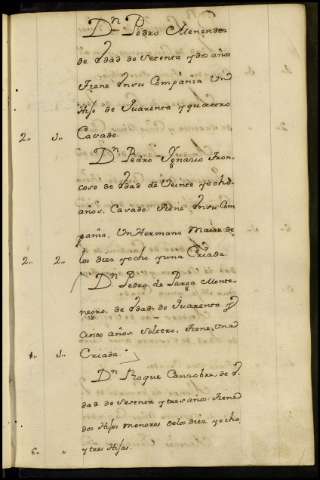 Dn Pedro Menendes
de Edad de Setenta y dos años
tiene en su Compañia Un
Hijo de Quarenta y quatro
2. 1. Casado.
Dn Pedro Ygnacio
de Edad de Veinte y ocho
años, Casado, tiene en su Com
pañia, Un Hermano Maior de
2. 2. los diez y ocho y una Criada
Dn Pedro de Parga Monte
negro de Edad de Quarenta y
Cinco años Soltero, tiene una
1. 1. Criada.
Dn Roque de E
dad de Setenta y tres años, tiene
dos Hijos menores de los diez y ocho,
6. y tres Hijas.